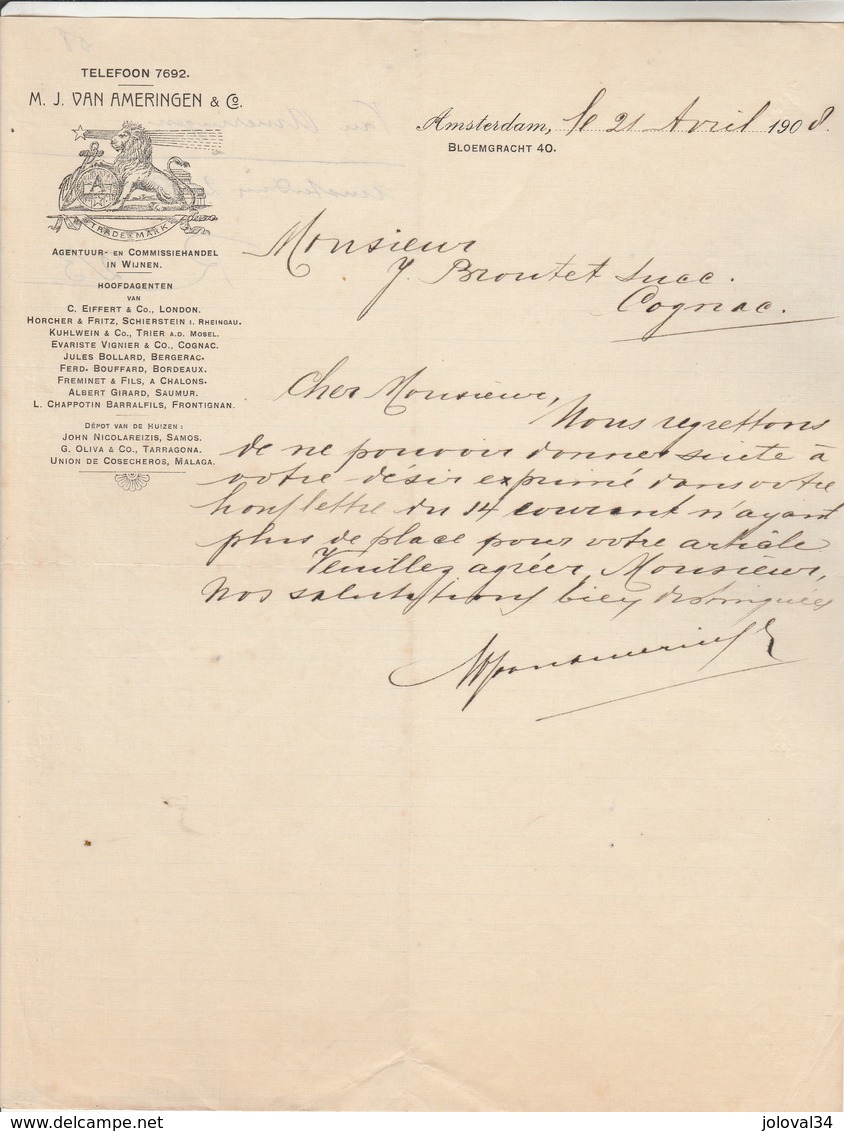 TELEFOON 7692.
M. J. VAN AMERINGEN & Co.
TRADE MARK
AGENTUUR- EN COMMISSIEHANDEL
IN WIJNEN.
HOOFDAGENTEN
VAN
C. EIFFERT & Co., LONDON.
HORCHER & FRITZ, SCHIERSTEIN I. RHEINGAU.
KUHLWEIN & Co., TRIER A.D. MOSEL.
EVARISTE VIGNIER & Co., COGNAC.
JULES BOLLARD, BERGERAC.
FERD. BOUFFARD, BORDEAUX.
FREMINET & FILS, A CHALONS.
ALBERT GIRARD, SAUMUR.
L. CHAPPOTIN BARRALFILS, FRONTIGNAN.
DÉPOT VAN DE HUIZEN:
JOHN NICOLAREIZIS, SAMOS.
G. OLIVA & Co., TARRAGONA.
UNION DE COSECHEROS, MALAGA.
Amsterdam, le 21 Avril 1908.
BLOEMGRACHT 40.
Monsieur
J. Broutet Succ.
Cognac.
Cher Monsieur,
Nous regrettons
de ne pouvoir donner suite à
votre désir exprimé dans votre
hon/ lettre du 14 courant n'ayant
plus de place pour votre article
Veuillez agréer Monsieur,
nos salutations bien distinguées
joloval34